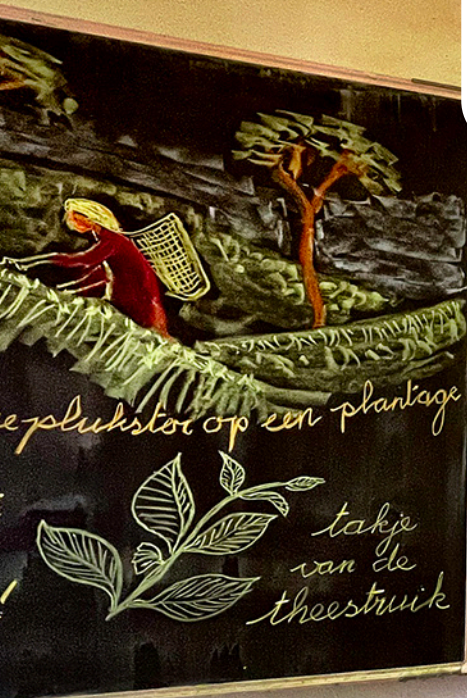 plukster op een plantage
!
takje
van de
theestruik